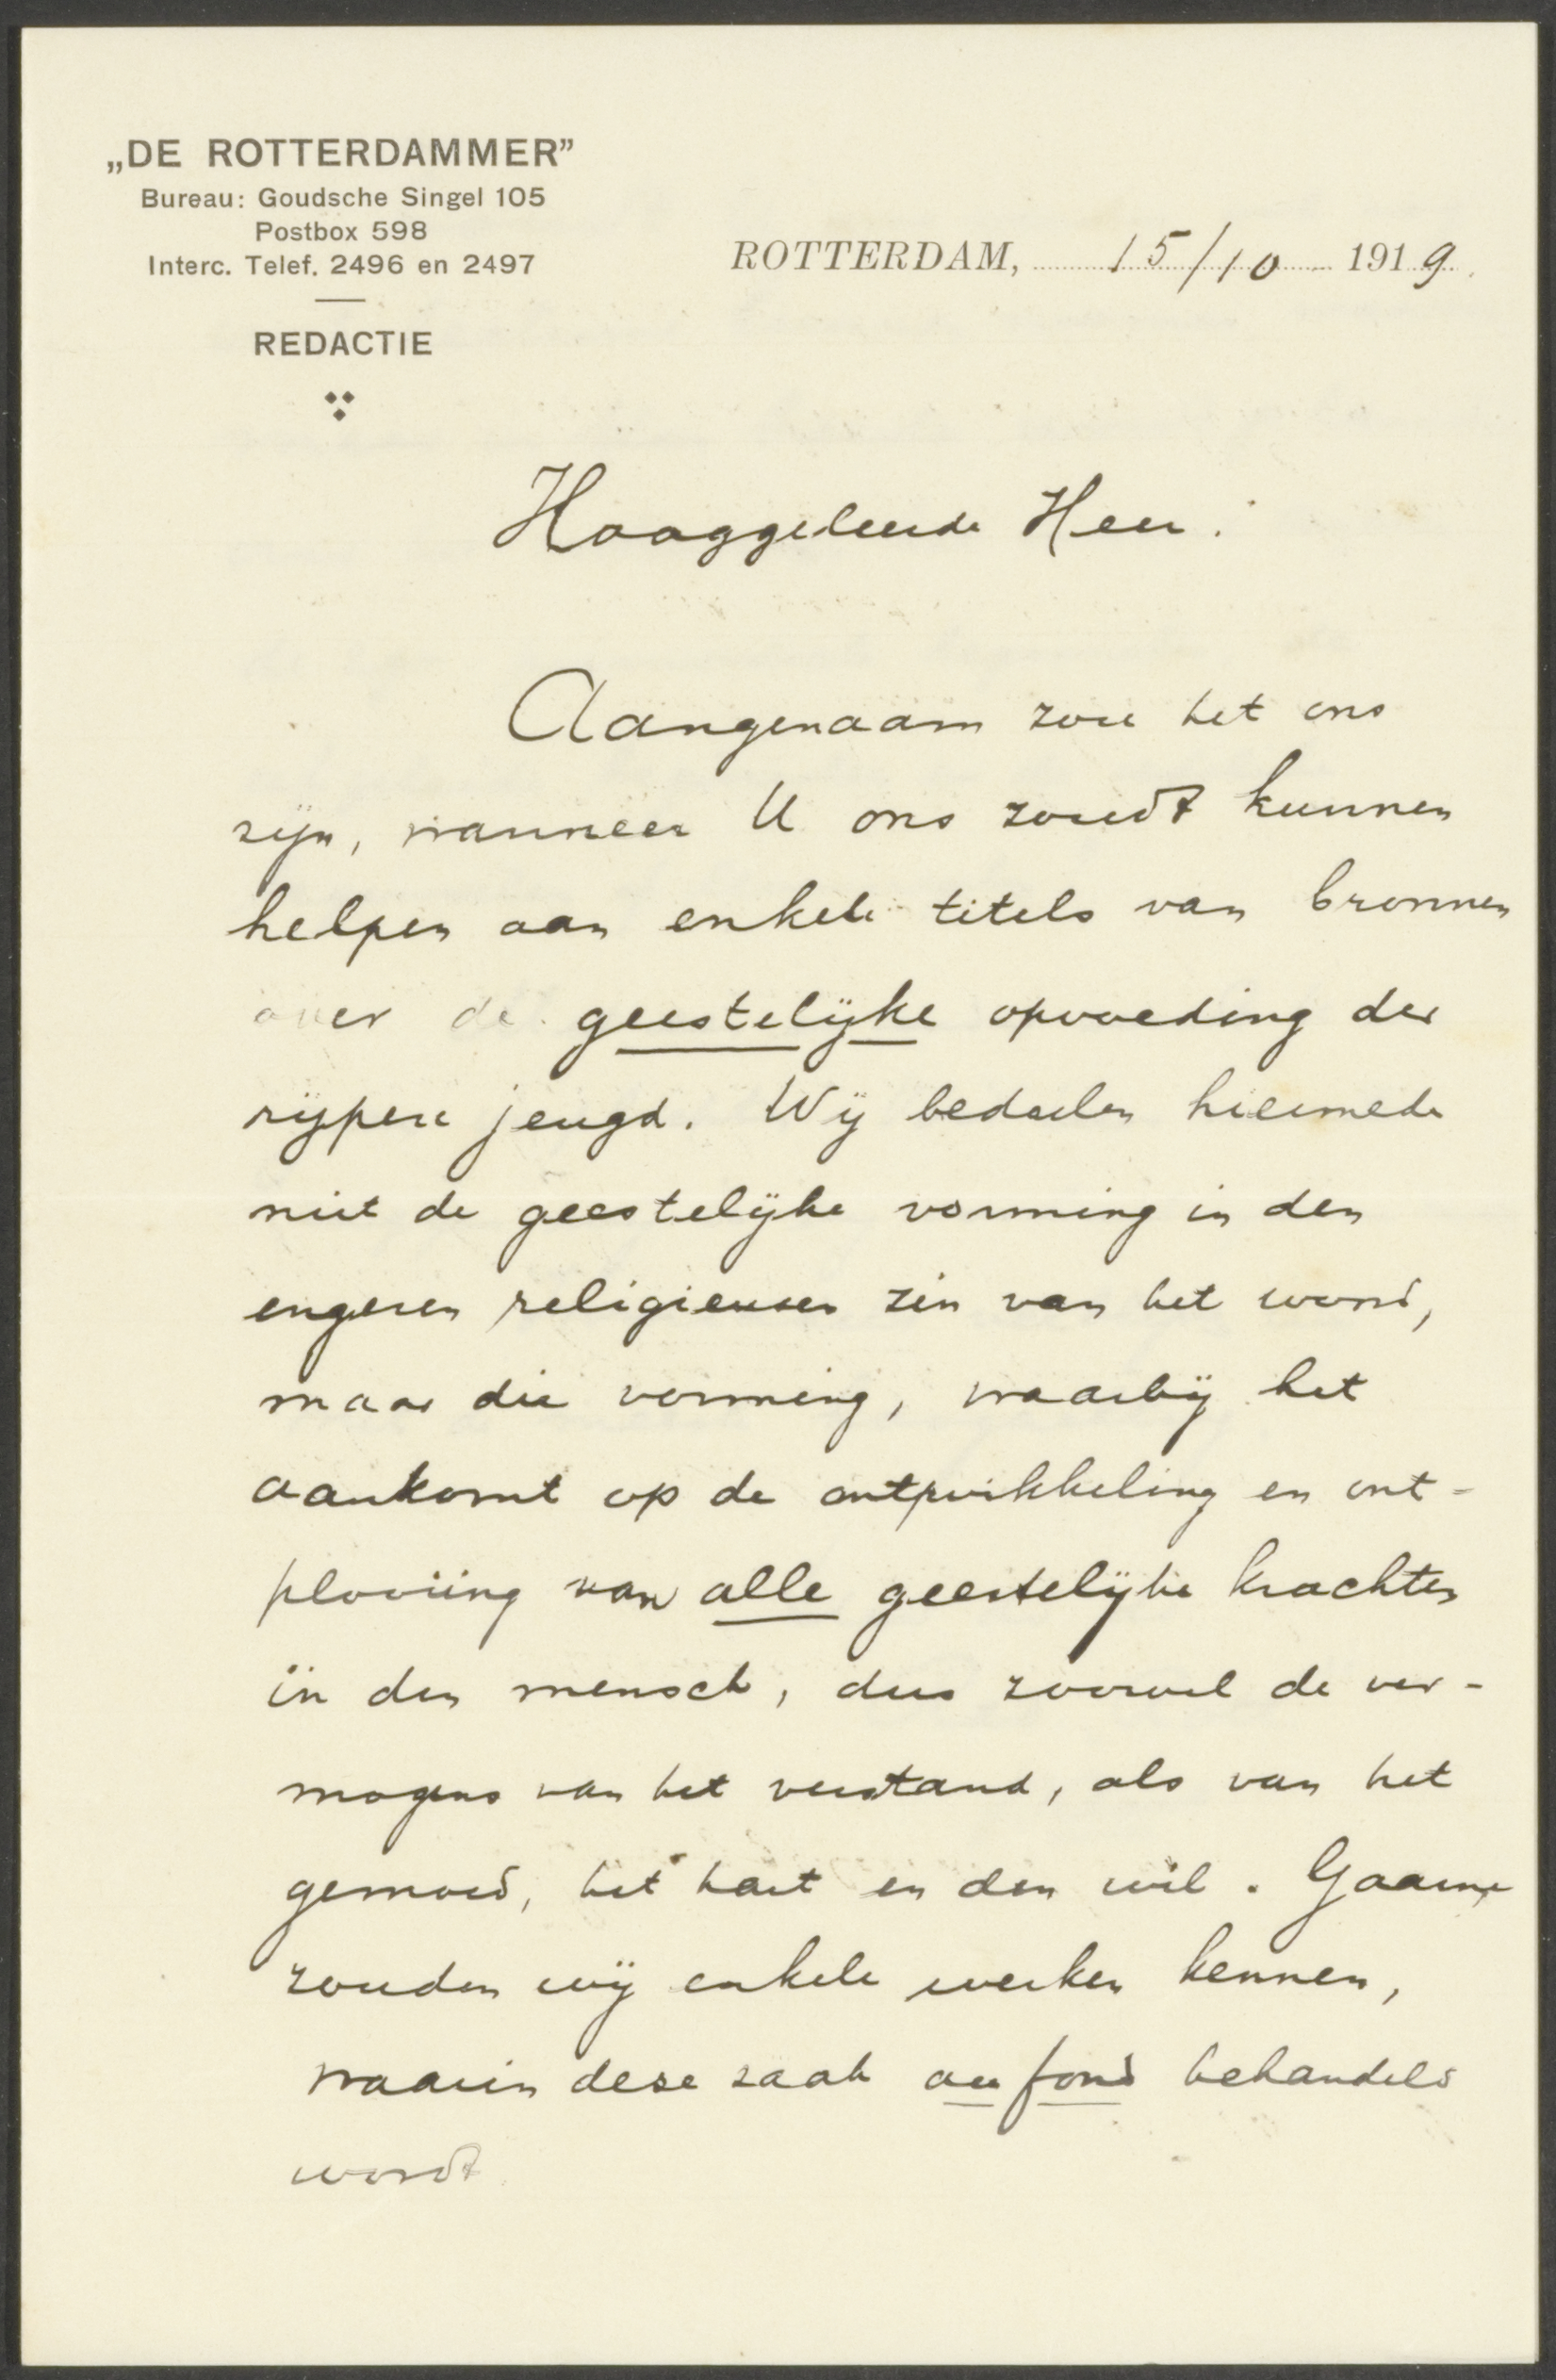 „DE ROTTERDAMMER”
Bureau: Goudsche Singel 105
Postbox 598
Interc. Telef. 2496 en 2497
REDACTIE
ROTTERDAM, 15/10 1919.
Hooggeleerde Heer:
Aangenaam zou het ons
zijn, wanneer U ons zoudt kunnen
helpen aan enkele titels van bronnen
over de geestelijke opvoeding der
rijpere jeugd. Wij bedoelen hiermede
niet de geestelijke vorming in den
engeren religieusen zin van het woord,
maar die vorming, waarbij het
aankomt op de ontwikkeling en ont-
plooiing van alle geestelijke krachten
in den mensch, dus zoowel de ver-
mogens van het verstand, als van het
gemoed, het hart en den wil. Gaarne
zouden wij enkele werken kennen,
waarin deze zaak au fond behandeld
wordt